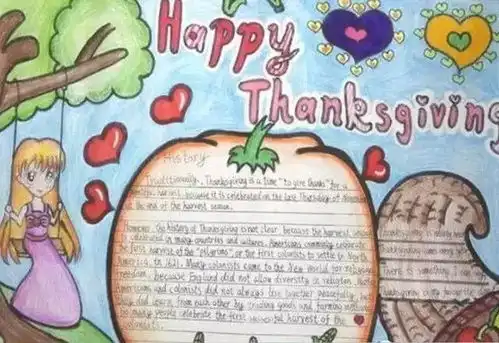 Happy
Thanksgiving
History
Traditionally, Thanksgiving is a time "to give thanks" for a
harvest, because it is celebrated on the last Thursday of
at the end of the harvest season.
However, the history of Thanksgiving is not clear because the harvest
is celebrated in many countries and cultures. Americans commonly celebrate
the first harvest of the "pilgrims", or the first colonists to settle in North
America, in 1621. Many colonists came to the New World for religious
freedom, because England did not allow diversity in religion.
Americans and colonists did not always live together peacefully,
they did learn from each other by trading goods and farming
So many people celebrate the first harvest of the
colonists.
Thanksgiving is
Thanksgiving
There is something I can
Thanksgiving is my favourite